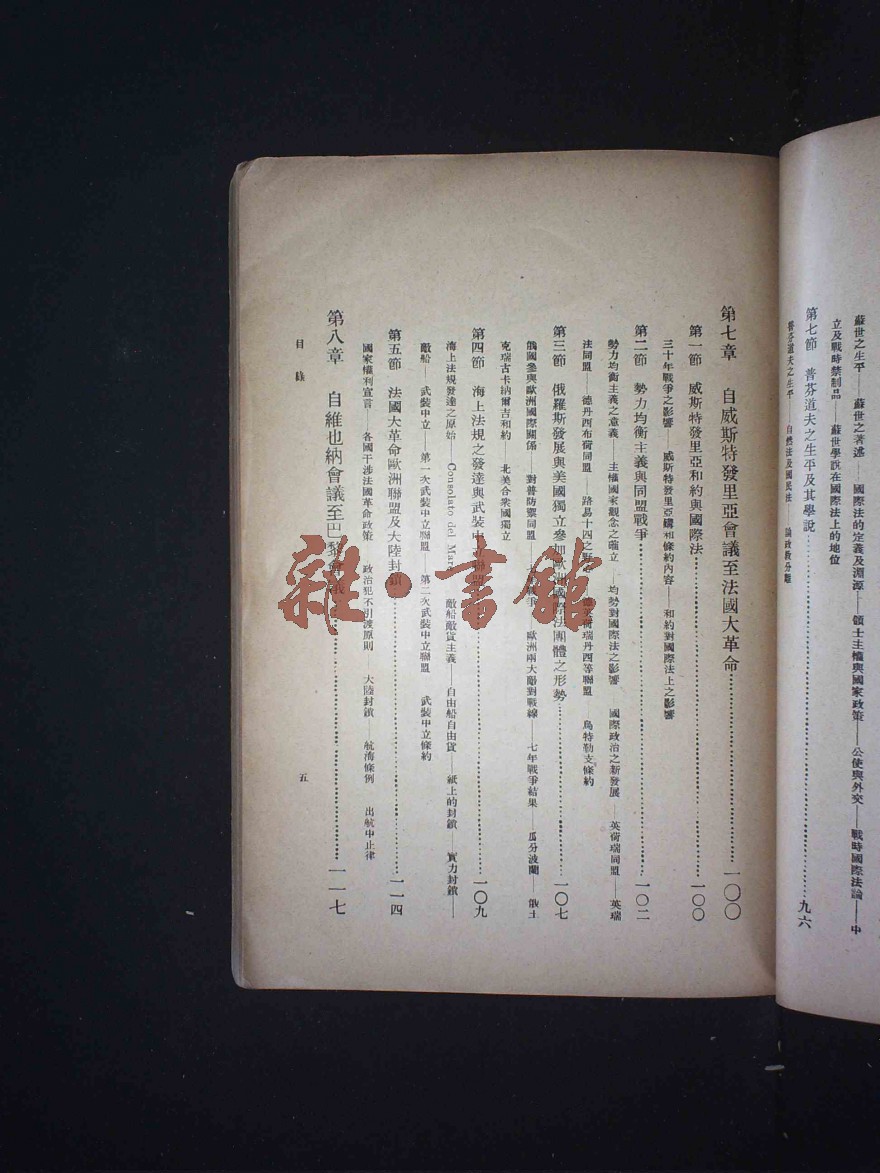 蘇世之生平——蘇世之著述——國際法的定義及淵源——領土主權與國家政策——公使與外交——戰時國際法論——中
立及戰時禁制品——蘇世學說在國際法上的地位
第七節　普芬道夫之生平及其學說…………九六
普芬道夫之生平——自然法及國民法——論政教分離
第七章　自威斯特發里亞會議至法國大革命…………一〇〇
第一節　威斯特發里亞和約與國際法…………一〇〇
三十年戰爭之影響——威斯特發里亞媾和條約內容——和約對國際法上之影響
第二節　勢力均衡主義與同盟戰爭…………一〇二
勢力均衡主義之意義——主權國家觀念之確立——均勢對國際法之影響——國際政治之新發展——英荷瑞同盟——英瑞
法同盟——德丹西布荷同盟——路易十四之戰爭——德英荷瑞丹西等聯盟——烏特勒支條約
第三節　俄羅斯發展與美國獨立參加歐洲國際法團體之形勢…………一〇七
俄國參與歐洲國際關係——對普防禦同盟——七年戰爭——歐洲兩大敵對戰線——七年戰爭結果——瓜分波蘭——俄土
克瑞古卡納爾吉和約——北美合衆國獨立
第四節　海上法規之發達與武裝中立聯盟…………一〇九
海上法規發達之原始——Consolato del Mare——敵船敵貨主義——自由船自由貨——紙上的封鎖——實力封鎖——
敵船——武裝中立——第一次武裝中立聯盟——第二次武裝中立聯盟——武裝中立條約
第五節　法國大革命歐洲聯盟及大陸封鎖…………一一四
國家權利宣言——各國干涉法國革命政策——政治犯不引渡原則——大陸封鎖——航海條例——出航中止律
第八章　自維也納會議至巴黎會議…………一一七
目錄　五
雜·書館